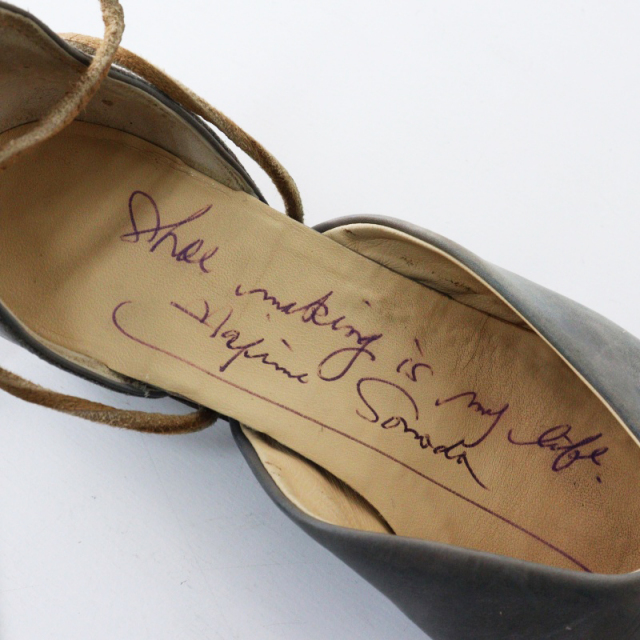 Shoe making is my life.
Hajime Sonoda